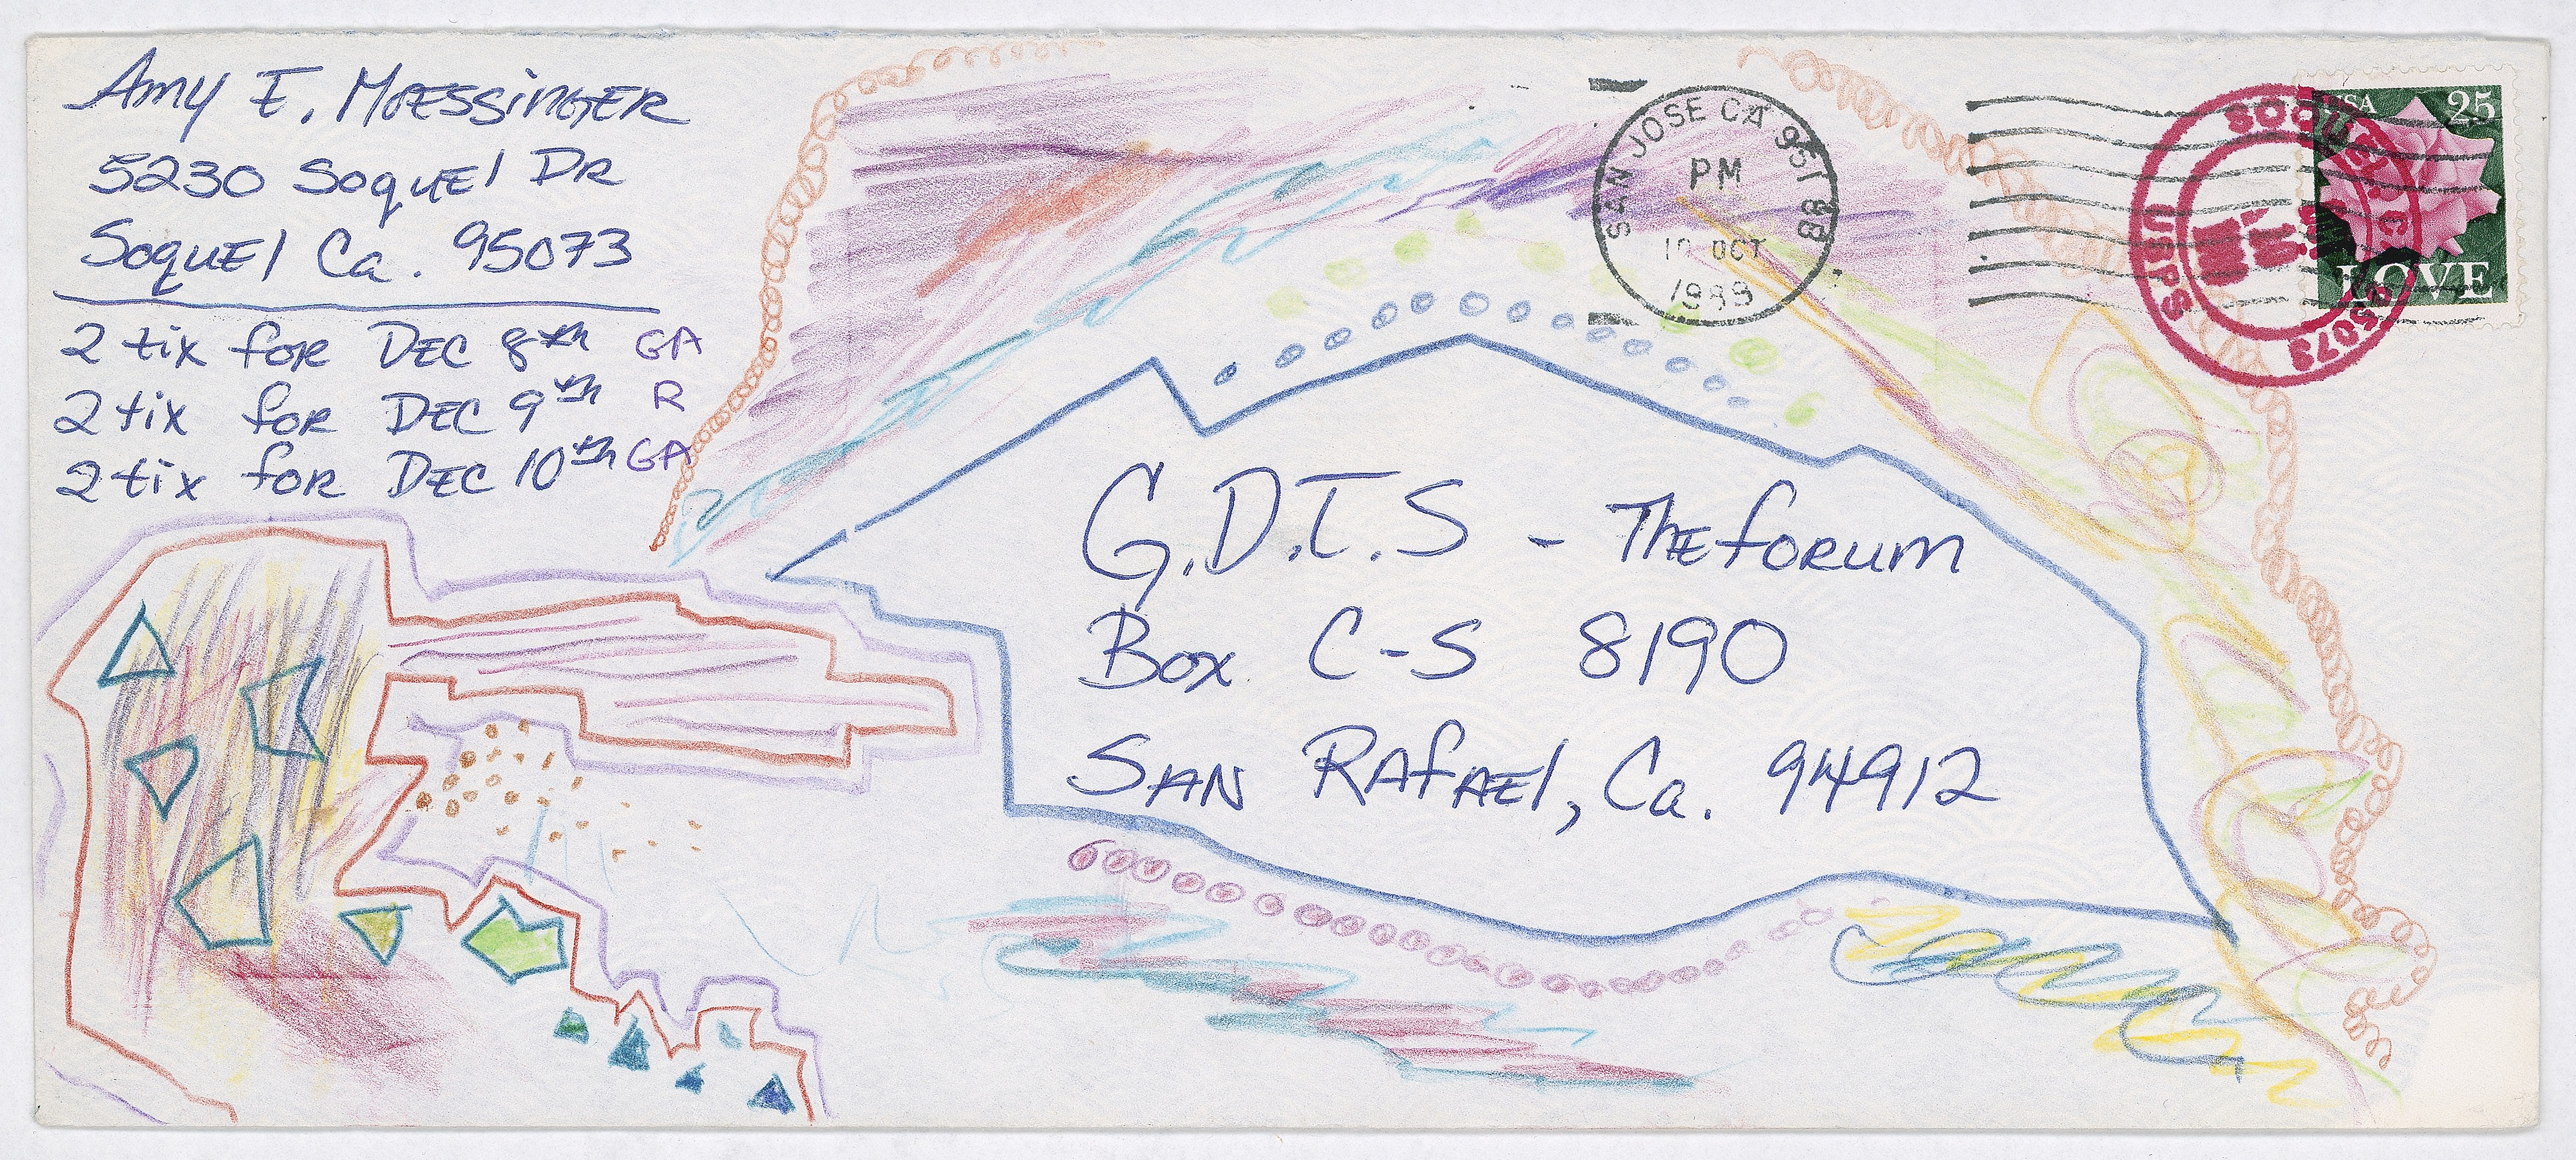 Amy E. Moessinger
5230 Soquel Dr
Soquel Ca. 95073
2 tix for Dec 8th GA
2 tix for Dec 9th R
2 tix for Dec 10th GA
SAN JOSE CA 951
PM
OCT
USA 25
LOVE
SOQUEL, CA
95073
USPS
G.D.T.S - The Forum
Box C-S 8190
San Rafael, Ca. 94912